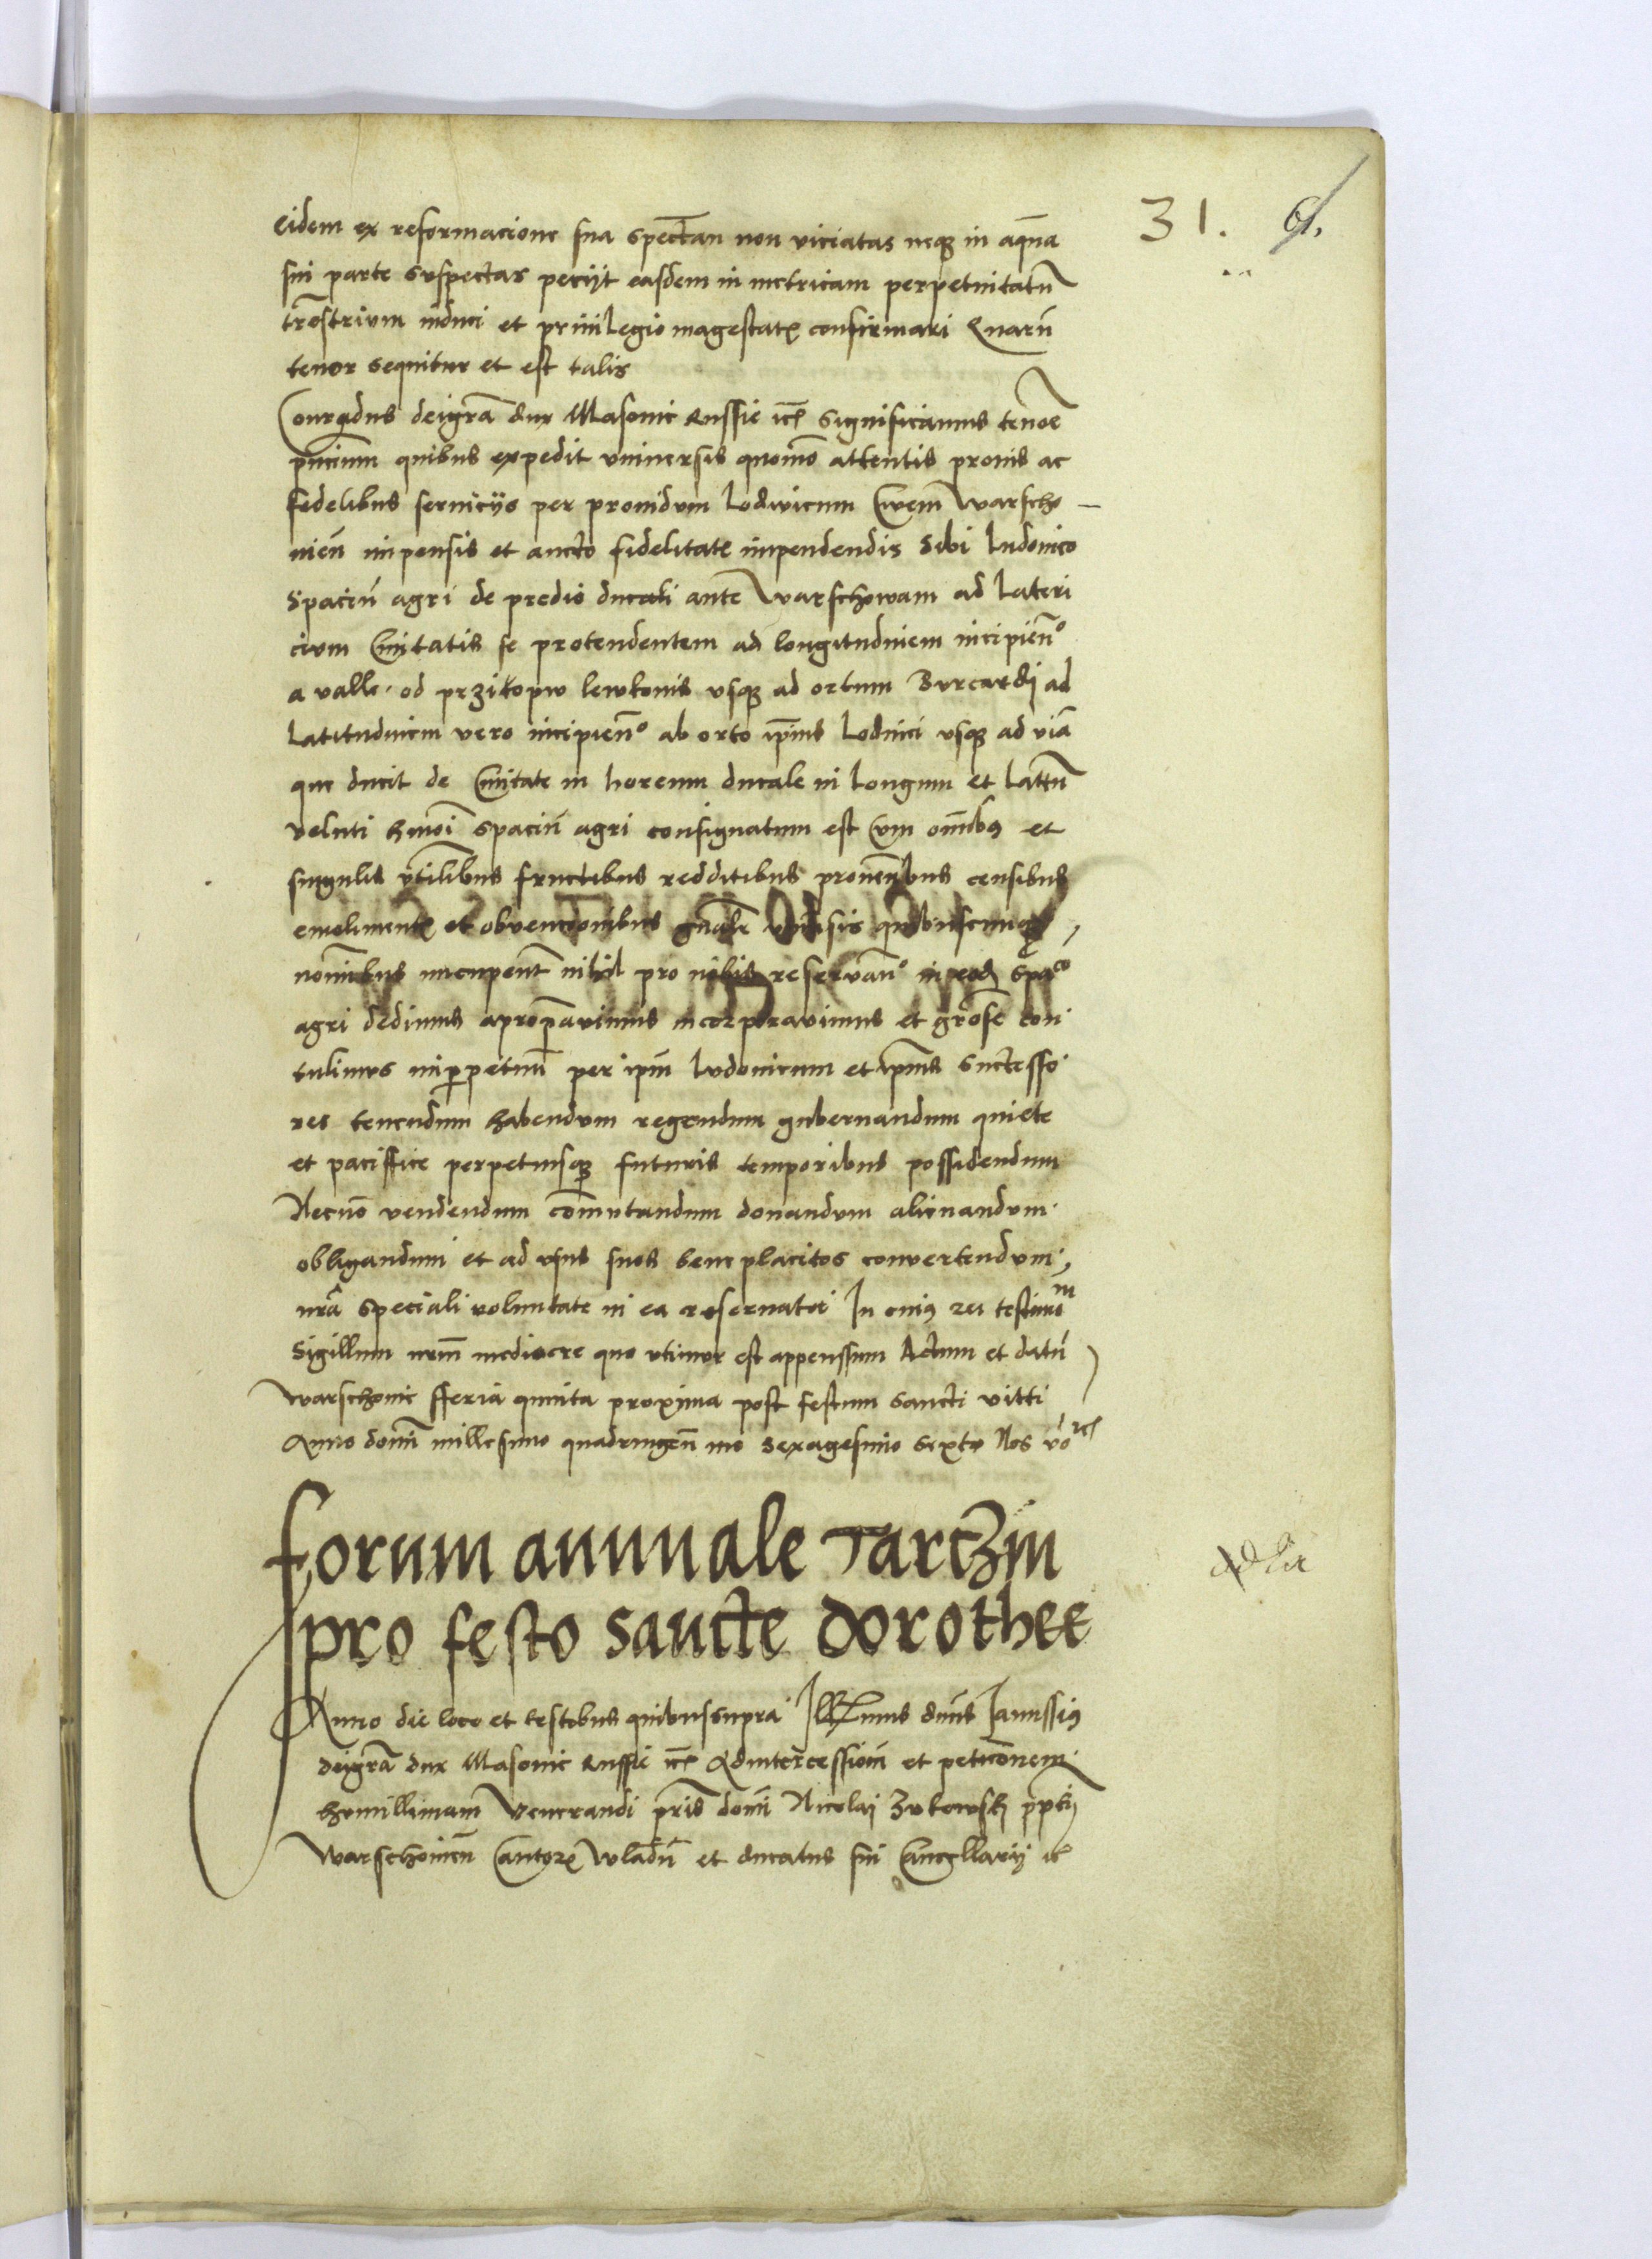 31. 61.
eidem ex reformacione sua spectan non viciatas neqȝ in aq̄na
sui parte suspectas peciyt easdem in metricam perpetuitatū
tr̄estrivm induci et priuilegio magestatꝫ confirmari Quarū
tenor sequitur et est talis
Conradus deigrā dux Masouie Russie ꝛc̄ Significamus tenoē
pn̄cium quibus expedit vniuersis quomō attentis prouis ac
fidelibus seruicijs per prouidum Lodwicum Civem Warscho
uien̄ inpensis et aucto fidelitatꝫ inpendendis Sibi ludouico
Spaciū agri de predio ducali ante Warschowam ad lateri
civm Ciuitatis se protendentem ad longitudinem incipien̄º
a valle od przikopw lewkonis vsqȝ ad ortum Burcardi ad
latitudinem vero incipien̄º ab orto ip̄ius Lodiuici vsqȝ ad viā
que ducit de Ciuitate in horeum ducale in longum et latū
veluti hmōi spaciū agri consignatum est Cvm om̄ibꝰ et
singulis vtilibus fructibus redditibus prouen̄bus censibus
emolimentꝫ et obvencionibus gn̄alr vniūsis quibuscunqȝ
nom̄ibus nuncupent̄ nihil pro nobis reservan̄º in eod spa͞co
agri dedimus apropͣavimus incorporavimus et grōse con
tulimus inp̱petuū per ip̄m ludouicum et ip̄ius successo
res tenendum habendvm regendum gubernandum quiete
et paciffice perpetuisqȝ futuris temporibus possidendum
Necnō vendendum com̄utandum donandvm alienandvm
obligandum et ad vsus suos beneplacitos convertendvm
nr̄a speciali voluntate in ea reseruata In cuiꝰ rei testimoᵐ
Sigillum nrm̄ mediocre quo vtimur est appenssum Actum et datū
Warschouie fferia quinta proxima post festum sancti vitti
Anno domī millesimo quadringen̄mo sexagesimo sexto Nos vō ꝛc̄
forum annuale Tarczin
pro festo sancte dorothee
Anno die loco et testibus quibus supra Illr̄imus dn̄us Ianussiꝰ
deigrā dux Masouie Russie ꝛc̄ Adintercessionē et peticōnem
humillimam Venerandi pr̄is domī Nicolai Zukowskj pp̄ti
Warschouien̄ Cantorꝫ wladn̄ et ducatus sui Cancellarij ꝛc̄